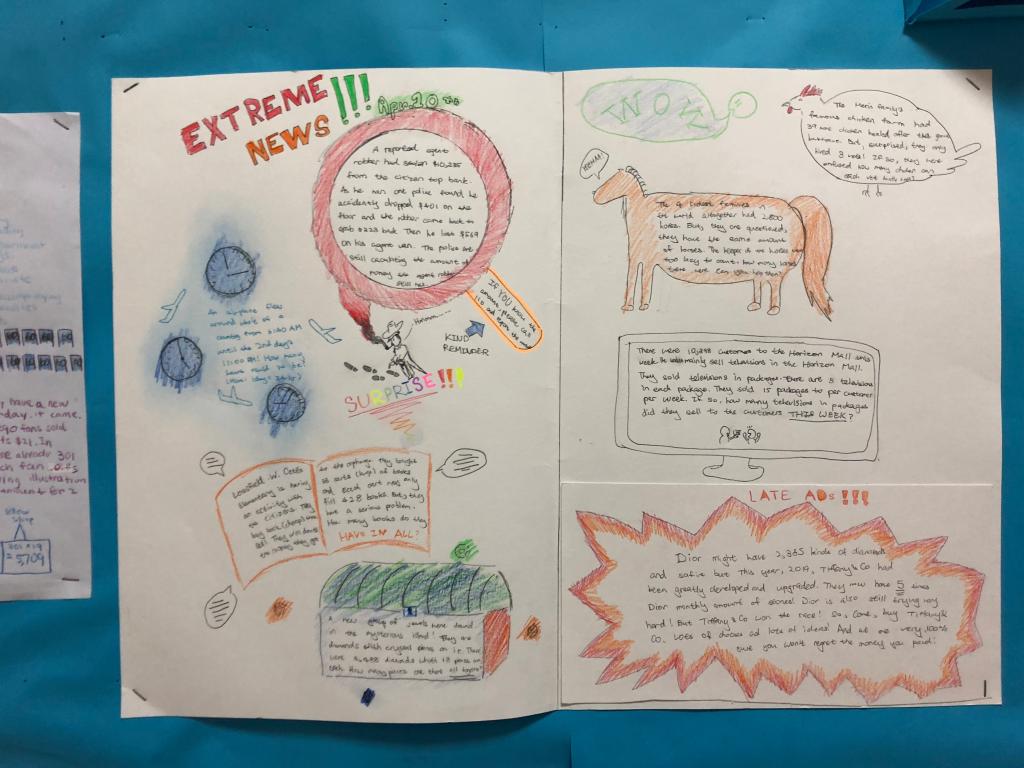 EXTREME!!!
NEWS
Apr. 20th
A reported agent
robber had stolen $10,285
from the citizen top bank.
As he ran one police found he
accidently dropped $401 on the
floor and the robber came back to
grab $223 back. Then he lost $569
on his again. The police are
still calculating the amount of
money the agent robber
still has.
If YOU know the
amount, please call
110 and report the
KIND
REMINDER
Hmmm....
An airplane flew
around of a
country from AM
until the 2nd day's
11:00 AM! How many
hours
SURPRISE!!!
W. Cates
Elementary is having
an activity with
the citizens. They
buy
the money they got
to the orphange they bought
carts of books
and each cart may only
fill 428 books. But, they
have a serious problem.
How many books do they
HAVE IN ALL?
A new of jewels were found
in the mysterious island! They are
diamonds with crystal pieces on it. There
were diamonds which 18 pieces on
each. How many pieces are there all together?
WOW
The family's
famous chicken farm had
39 more chicken healed after the
But, surprised, they only
hired 3 vets! If so, they were
confused how many chicken can
each vet
HMMM!
The 4 richest families in
the world altogether had 2,800
horses. But, they are questioned,
they have the same amount
of horses. The keeper of the horses was
too lazy to count. how many horses
there were. Can you help them?
There were customer to the Horizon Mall this
week. mainly sell televisions in the Horizon Mall.
They sold televisions in packages. There are 5 televisions
in each package. They sold 15 packages to per customer
per week. If so, how many televisions in packages
did they sell to the customers THIS WEEK?
LATE ADs !!!
Dior might have 2,365 kinds of diamonds
and safire but this year, 2019, Tiffany & Co had
been greatly developed and upgraded. They now have 5 times
Dior monthly amount of stones! Dior is also still trying very
hard! But Tiffany & Co won the race! So, Come, buy Tiffany &
Co. Lots of choices and lots of ideas! And we are very 100%
sure you won't regret the money you paid!
have a new
day. it came.
fans sold
$21. In
already 301
fan
illustration
for 2
Yellow
301 x 19
= 5,709